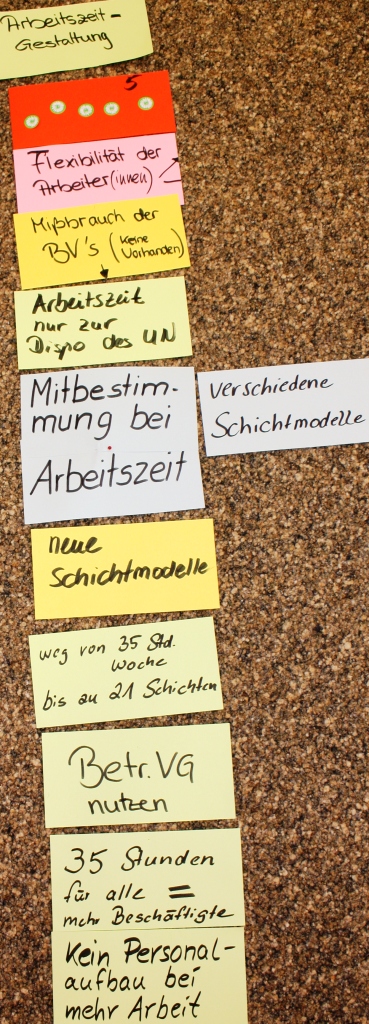 Arbeitszeit-
Gestaltung
5
Flexibilität der
Arbeiter(innen)
Mißbrauch der
BV's (Keine
Vorhanden)
Arbeitszeit
nur zur
Dispo des UN
Mitbestim-
mung bei
Arbeitszeit
verschiedene
Schichtmodelle
neue
Schichtmodelle
weg von 35 Std.
Woche
bis zu 21 Schichten
Betr.VG
nutzen
35 Stunden
für alle =
mehr Beschäftigte
Kein Personal-
aufbau bei
mehr Arbeit